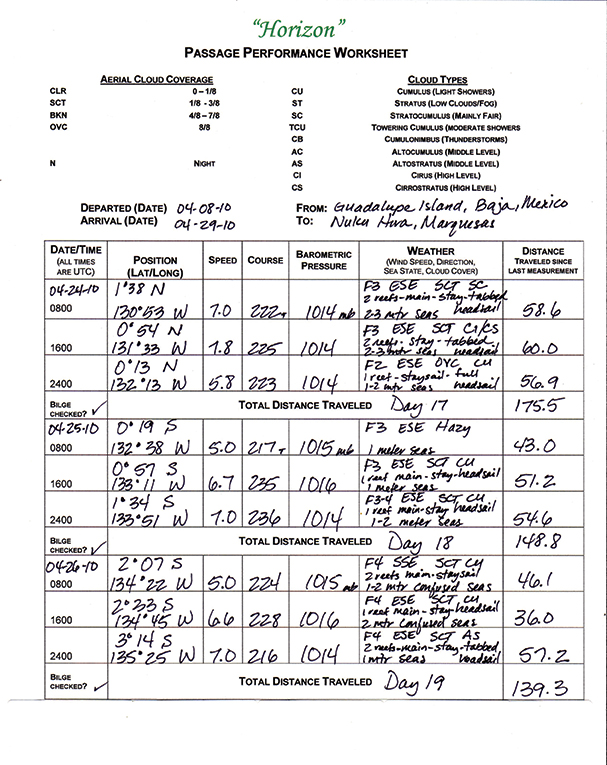 "Horizon"
PASSAGE PERFORMANCE WORKSHEET
AERIAL CLOUD COVERAGE CLOUD TYPES
CLR 0 – 1/8 CU CUMULUS (LIGHT SHOWERS)
SCT 1/8 - 3/8 ST STRATUS (LOW CLOUDS/FOG)
BKN 4/8 – 7/8 SC STRATOCUMULUS (MAINLY FAIR)
OVC 8/8 TCU TOWERING CUMULUS (MODERATE SHOWERS
CB CUMULONIMBUS (THUNDERSTORMS)
AC ALTOCUMULUS (MIDDLE LEVEL)
N NIGHT AS ALTOSTRATUS (MIDDLE LEVEL)
CI CIRUS (HIGH LEVEL)
CS CIRROSTRATUS (HIGH LEVEL)
DEPARTED (DATE) 04-08-10 FROM: Guadalupe Island, Baja, Mexico
ARRIVAL (DATE) 04-29-10 TO: Nuku Hiva, Marquesas
DATE/TIME (ALL TIMES ARE UTC) POSITION (LAT/LONG) SPEED COURSE BAROMETRIC PRESSURE WEATHER (WIND SPEED, DIRECTION, SEA STATE, CLOUD COVER) DISTANCE TRAVELED SINCE LAST MEASUREMENT
04-24-10 1°38 N F3 ESE SCT SC
2 reefs-main-stay-tabbed
0800 130°53 W 7.0 222T 1014 mb 2-3 mtr seas headsail 58.6
0°54 N F3 ESE SCT CI/CS
2 reefs-stay-tabbed
1600 131°33 W 7.8 225 1014 2-3 mtr seas headsail 60.0
0°13 N F2 ESE OVC CU
1 reef-staysail-full
2400 132°13 W 5.8 223 1014 1-2 mtr seas headsail 56.9
BILGE CHECKED? ✓ TOTAL DISTANCE TRAVELED Day 17 175.5
04-25-10 0°19 S F3 ESE Hazy
0800 132°38 W 5.0 217T 1015 mb 1 meter seas 43.0
0°57 S F3 ESE SCT CU
1 reef main-stay-headsail
1600 133°11 W 6.7 235 1016 1 meter seas 51.2
1°34 S F3-4 ESE SCT CU
1 reef main-stay-headsail
2400 133°51 W 7.0 236 1014 1-2 meter seas 54.6
BILGE CHECKED? ✓ TOTAL DISTANCE TRAVELED Day 18 148.8
04-26-10 2°07 S F4 SSE SCT CU
2 reefs main-staysail
0800 134°22 W 5.0 224 1015 mb 1-2 mtr confused seas 46.1
2°33 S F4 ESE SCT CU
1 reef main-stay-headsail
1600 134°45 W 6.6 228 1016 2 mtr confused seas 36.0
3°14 S F4 ESE SCT AS
2 reefs-main-stay-tabbed
2400 135°25 W 7.0 216 1014 1 mtr seas headsail 57.2
BILGE CHECKED? ✓ TOTAL DISTANCE TRAVELED Day 19 139.3